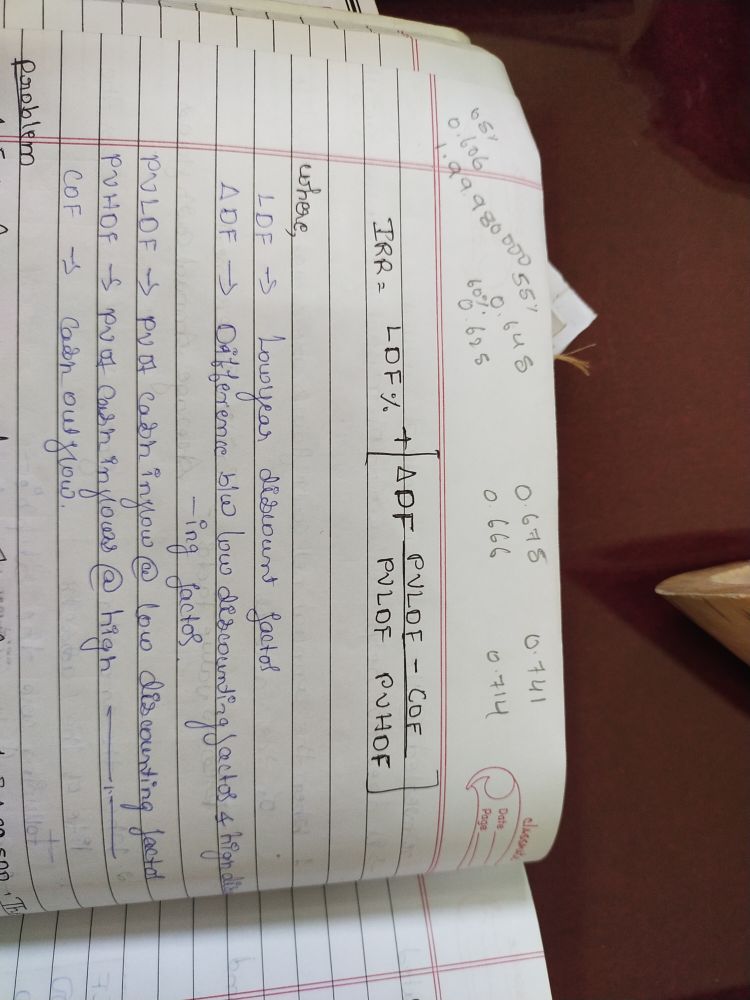 classmate
Date
Page
0.741
0.675
55%
0.645
0.714
0.666
60%
0.625
65%
0.606
1.9999800000
IRR = LDF% + [ΔDF PVLDF - COF
PVLDF PVHDF]
where,
LDF → Lowyear discount factor
ΔDF → Difference b/w low discounting factor & high dis
-ing factor.
PVLDF → PV of cash inflow @ low discounting factor
PVHDF → PV of cash inflows @ high —— " ——
COF → Cash outflow.
Problem